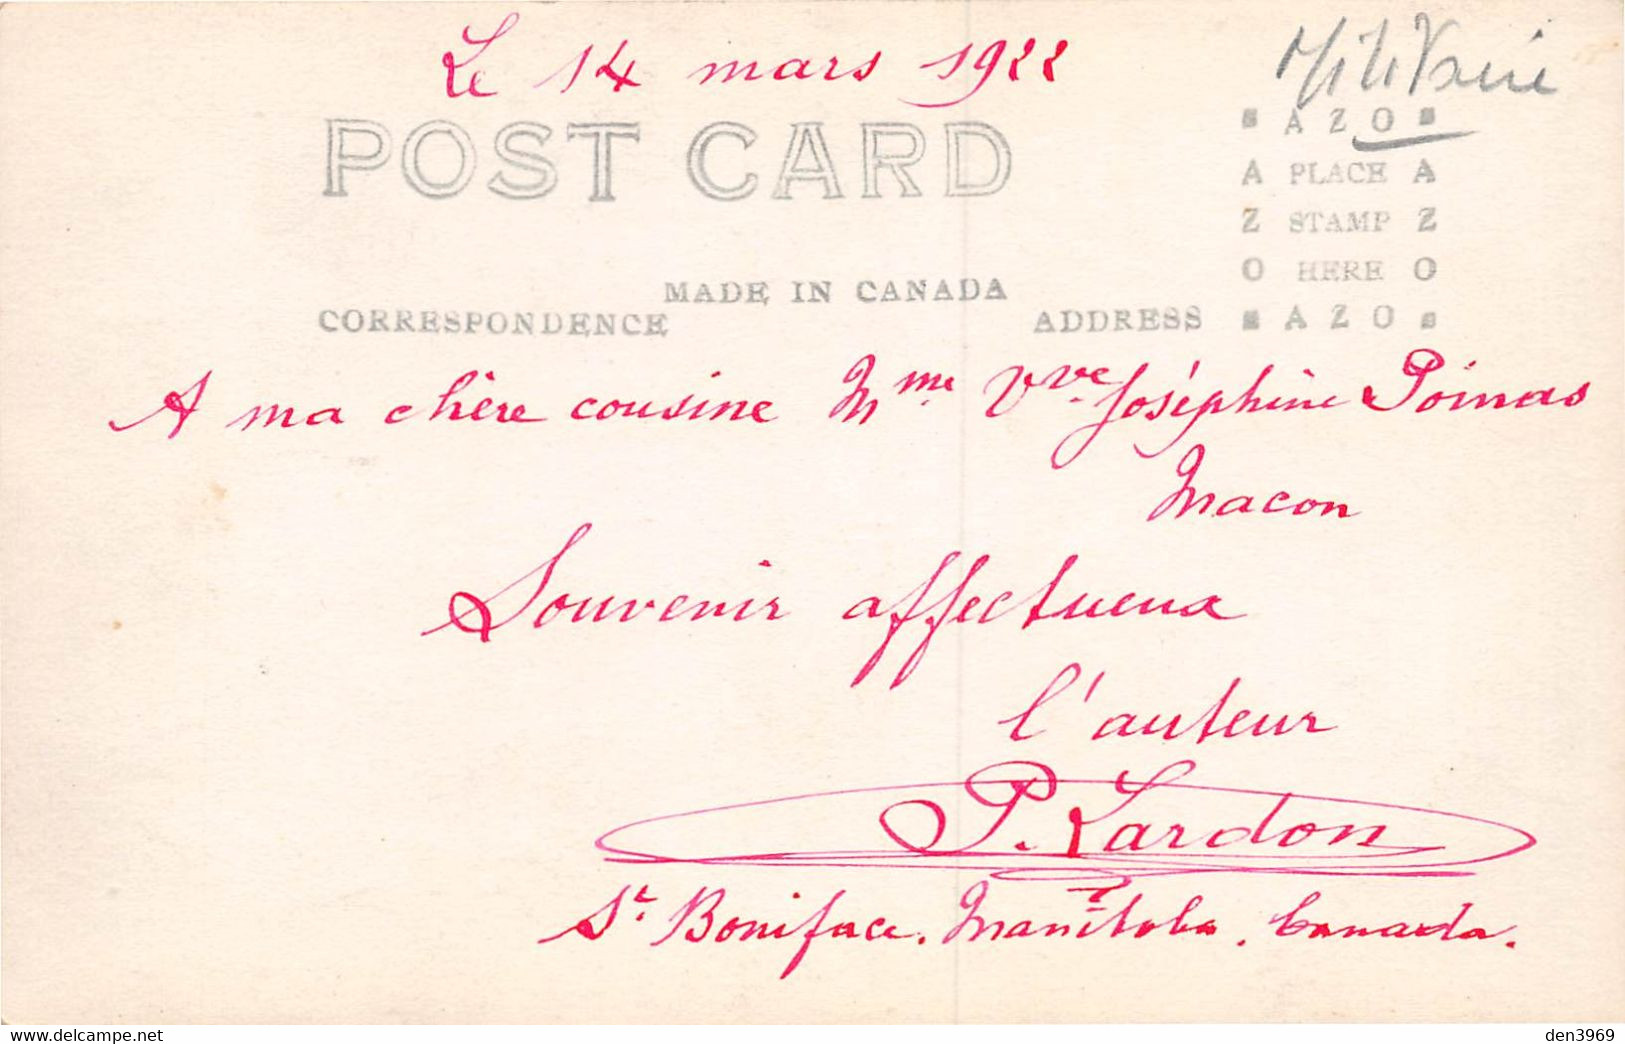 Le 14 mars 1922
Militaire
POST CARD
AZO
A PLACE A
Z STAMP Z
O HERE O
AZO
MADE IN CANADA
CORRESPONDENCE
ADDRESS
A ma chère cousine Mme Vve Joséphine Poinas
Macon
Souvenir affectueux
l'auteur
P. Lardon
St. Boniface. Manitoba. Canada.
www.delcampe.net
den3969